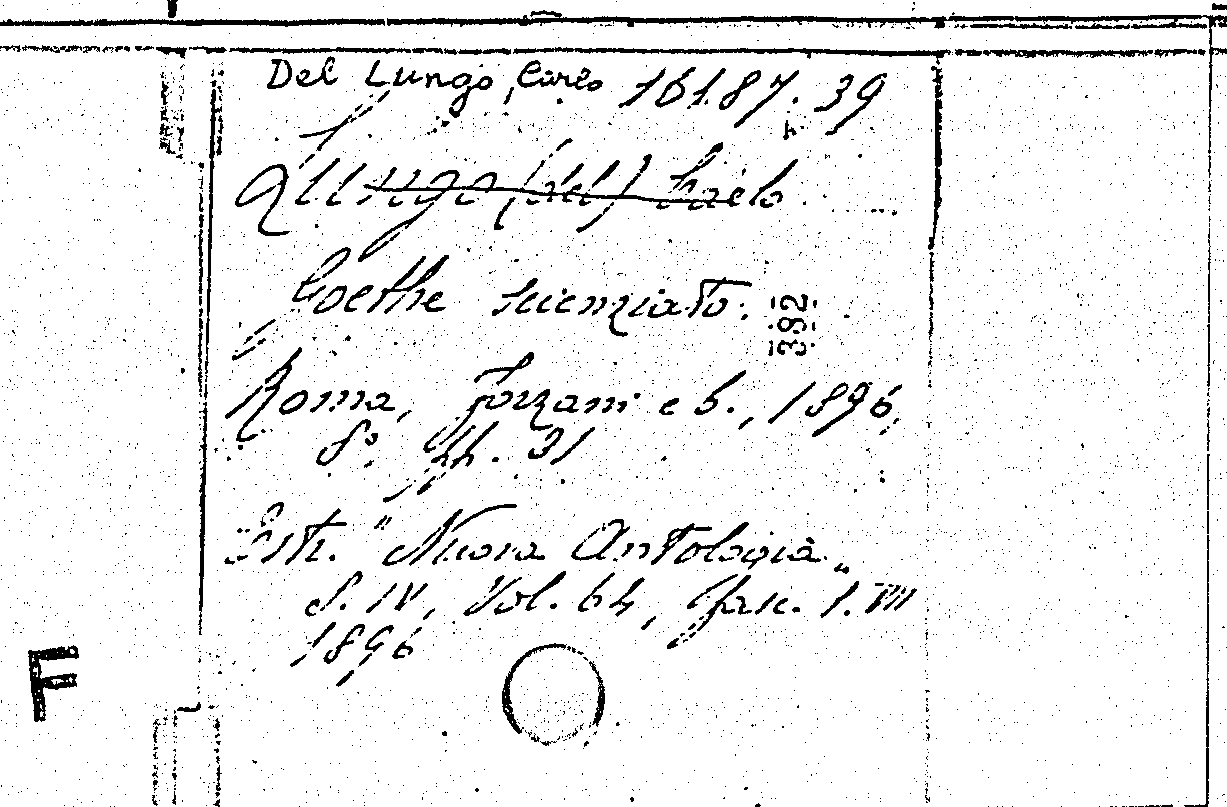 Del Lungo, Carlo 16187.39
Lungo (del) Carlo
Goethe scienziato.
392
Roma, Forzani e C., 1896,
8° pp. 31
Estr. "Nuova Antologia„
S. IV, Vol. 64, fasc. 1. VIII
1896
F